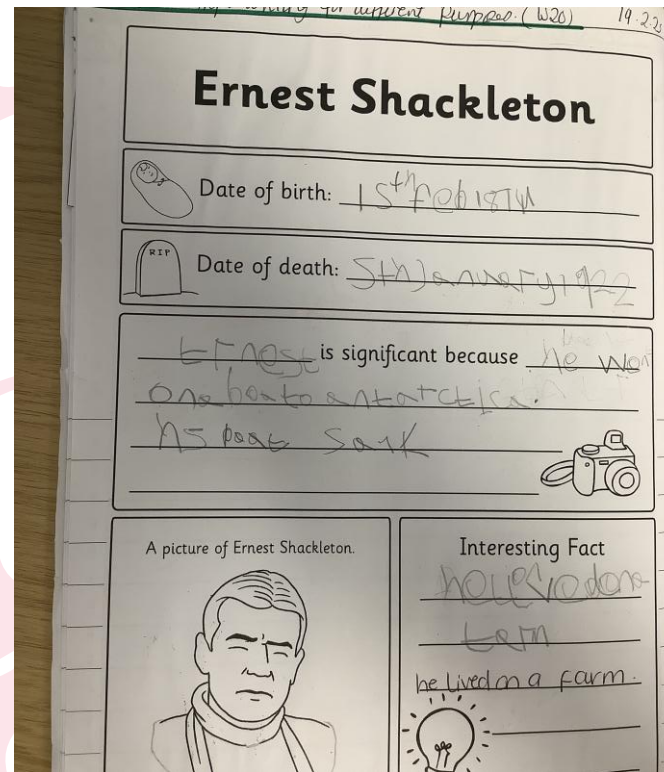 for different purposes. (W20) 19.2.25
Ernest Shackleton
Date of birth: 15th Feb 1874
RIP
Date of death: 5th January 1922
Ernest is significant because he won
one boat to antarctica.
his boat sank
A picture of Ernest Shackleton.
Interesting Fact
he lived on a farm.